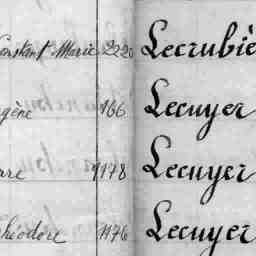 Constant Marie 2220 Lecrubiè
gène 166 Lecuyer
re 1178 Lecuyer
héodore 1176 Lecuyer